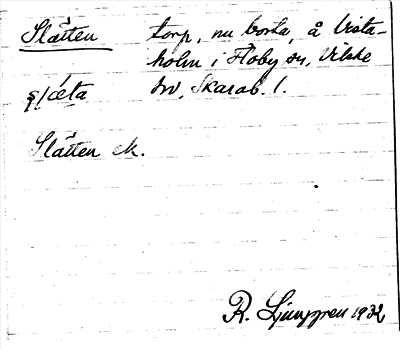 Slätten torp, nu borta, å Vista-
holm i Floby sn, Vilske
hd, Skarab. l.
Slätten ek.
R. Ljunggren 1932